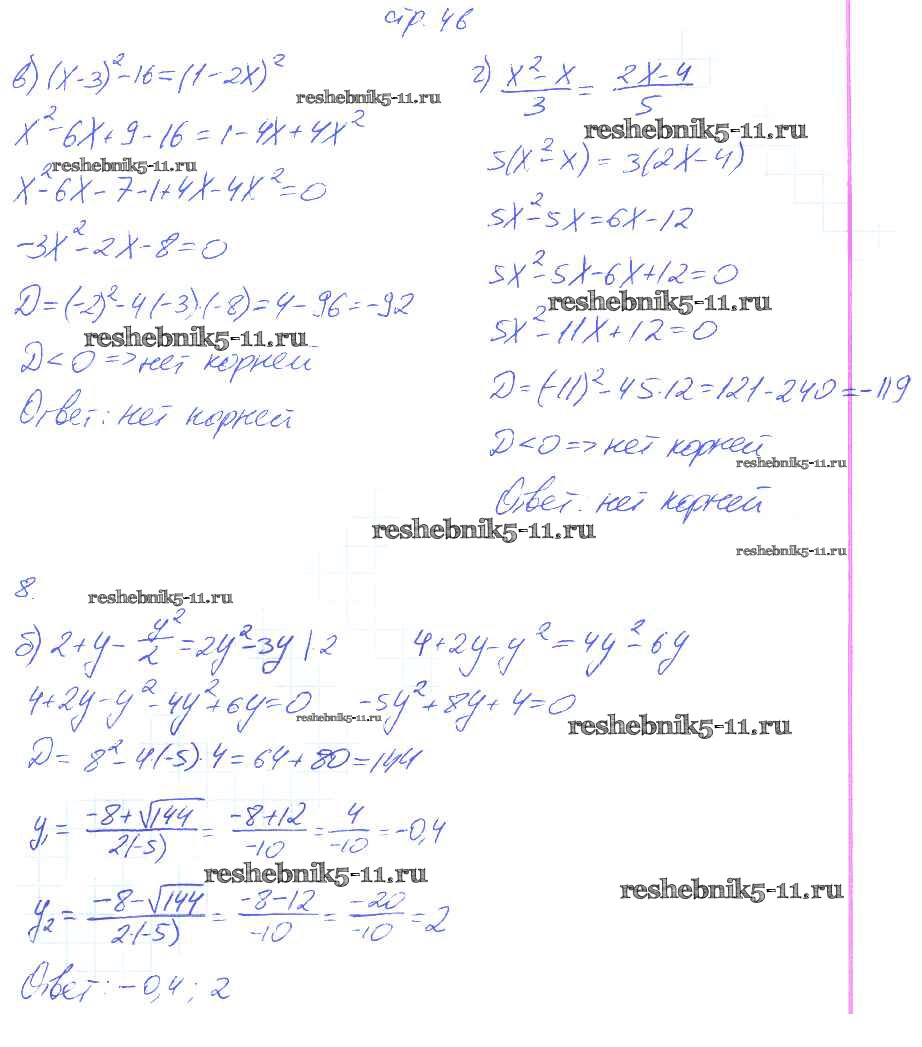 стр. 46
в) (x-3)²-16=(1-2x)²
reshebnik5-11.ru
x²-6x+9-16=1-4x+4x²
reshebnik5-11.ru
x²-6x-7-1+4x-4x²=0
-3x²-2x-8=0
D=(-2)²-4(-3)·(-8)=4-96=-92
reshebnik5-11.ru
D<0=>нет корней
Ответ: нет корней
г) (x²-x)/3 = (2x-4)/5
reshebnik5-11.ru
5(x²-x)=3(2x-4)
5x²-5x=6x-12
5x²-5x-6x+12=0
reshebnik5-11.ru
5x²-11x+12=0
D=(-11)²-45·12=121-240=-119
D<0=>нет корней
reshebnik5-11.ru
Ответ: нет корней
reshebnik5-11.ru
reshebnik5-11.ru
8.
reshebnik5-11.ru
б) 2+y-y²/2=2y²-3y |·2 4+2y-y²=4y²-6y
4+2y-y²-4y²+6y=0 -5y²+8y+4=0
reshebnik5-11.ru
reshebnik5-11.ru
D=8²-4·(-5)·4=64+80=144
y₁=(-8+√144)/2(-5)=(-8+12)/-10=4/-10=-0,4
reshebnik5-11.ru
reshebnik5-11.ru
y₂=(-8-√144)/2·(-5)=(-8-12)/-10=-20/-10=2
Ответ: -0,4; 2